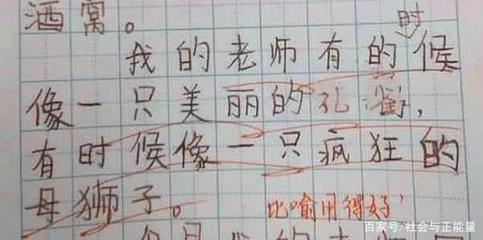 酒窝。
时
我的老师有的候
像一只美丽的孔
有时候像一只疯狂的
母狮子。 比喻用得好
百家号/社会与正能量